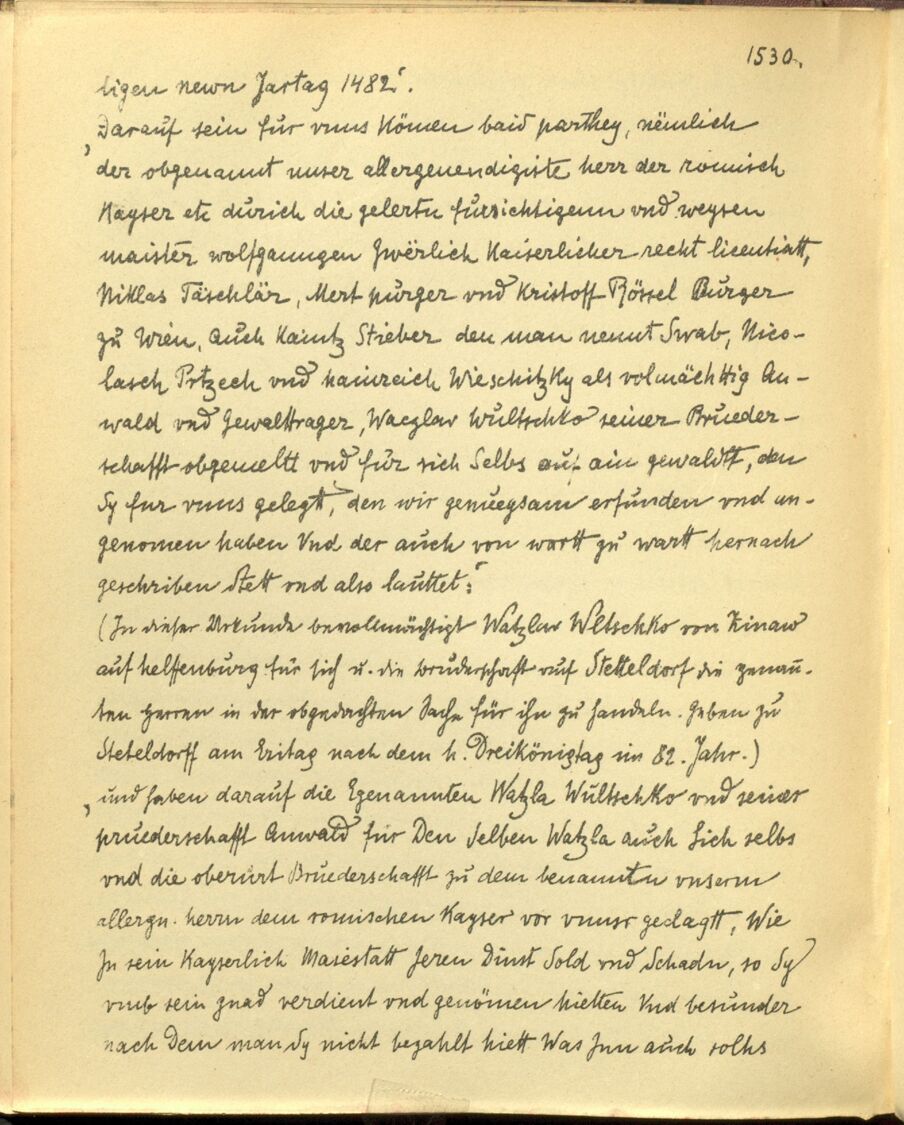 1530.
ligen newn Jartag 1482".
„Darauf sein für vnns kömen baid parthey, nëmlich
der obgenannt unser allergenendigiste herr der romisch
Kayser etc durich die gelertn fursichtigenn vnd weysen
maister wolfganngen Zwërlich Kaiserlicher recht licentiatt,
Niklas Täschlär, Mert purger vnd Kristoff Pössel Burger
zu Wien, auch Kaintz Stieber den man nennt Swab, Nico-
lasch Prtzech vnd hainreich Wieschitzky als volmächttig An-
wald vnd Gewalttrager, Waczlav Wultschko seiner Brueder-
schafft obgemeltt vnd für sich Selbs auf ain gewaldtt, den
Sy fur vnns gelegtt, den wir genuegsam erfunden vnd an-
genomen haben Vnd der auch von wortt zu wartt hernach
geschriben stett vnd also lauttet:"
(In dieser Urkunde bevollmächtigt Watzlav Wltschko von Zinaw
auf helffenburg für sich u. die bruderschafft auf Stetteldorf die genan̄-
ten herren in der obgedachten Sache für ihn zu handeln. Geben zu
Steteldorff am Eritag nach dem h. Dreikönigtag im 82. Jahr.)
„und haben darauf die Egenannten Watzla Wultschko vnd seiner
pruederschafft Anwald für Den selben Watzla auch Sich selbs
vnd die oberürt Bruederschafft zu dem benannten vnserm
allergn. herrn dem romischen Kayser vor vnnsr geclagtt, Wie
In sein Kayserlich Maiestatt Jeren Dinst Sold vnd Schadn, so Sy
vmb sein gnad verdient vnd genömen hietten Vnd besunder
nach Dem man Sy nicht bezahlt hiett Was Inn auch solhs